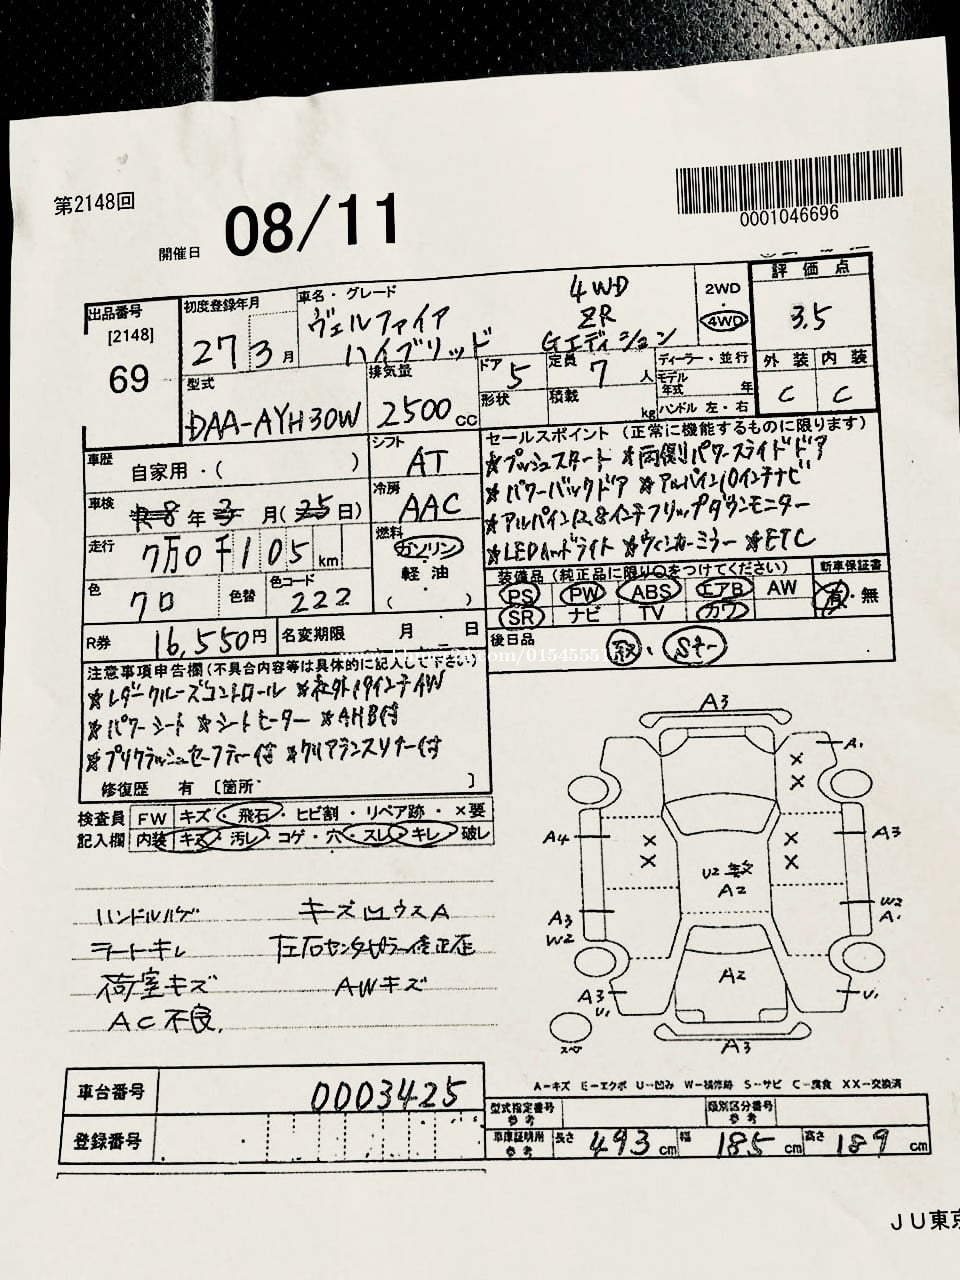 第2148回
開催日 08/11
0001046696
出品番号
[2148]
69
初度登録年月
27 3月
車名・グレード
ヴェルファイア
ハイブリッド
4WD
ZR
Gエディション
2WD
・
4WD
評価点
3.5
外装 内装
C C
型式
DAA-AYH30W
排気量
2500cc
ドア 5
形状
定員 7人
積載 kg
ディーラー・並行
モデル年式 年
ハンドル 左・右
車歴 自家用・( )
シフト AT
車検 R8年3月(25日)
冷房 AAC
走行 7万0千105km
燃料
ガソリン
・
軽油
( )
色 クロ 色替
色コード 222
R券 16,550円
名変期限 月 日
セールスポイント (正常に機能するものに限ります)
☆プッシュスタート ☆両側パワースライドドア
☆パワーバックドア ☆アルパイン10インチナビ
☆アルパイン12.8インチフリップダウンモニター
☆LEDヘッドライト ☆ウィンカーミラー ☆ETC
装備品 (純正品に限り○をつけてください)
新車保証書
PS PW ABS エアB AW
有・無
SR ナビ TV カワ
後日品 取、Sキー
注意事項申告欄(不具合内容等は具体的に記入して下さい)
☆レダークルーズコントロール ☆社外19インチAW
☆パワーシート ☆シートヒーター ☆AHB付
☆プリクラッシュセーフティー付 ☆クリアランスソナー付
修復歴 有 〔箇所 〕
検査員
記入欄
FW キズ・飛石・ヒビ割・リペア跡・×要
内装 キズ・汚レ・コゲ・穴・スレ・キレ・破レ
ハンドルハゲ キーズ凹ウスA
シートキレ 左右センターピラー修正歪
荷室キズ AWキズ
AC不良
A3
A1
A4
A3
U2 多数
A2
A3
W2
W2
A1
A2
A3
U1
U1
スペア
A3
A―キズ E―エクボ U―凹み W―補修跡 S―サビ C―腐食 XX―交換済
車台番号 0003425
登録番号
型式指定番号
参考
類別区分番号
参考
車庫証明用
参考
長さ 493cm 幅 185cm 高さ 189cm
JU東京